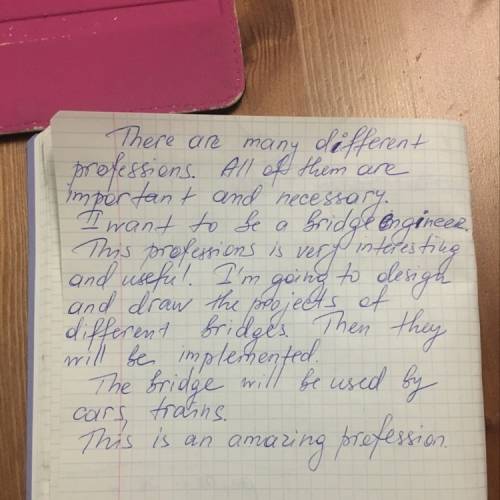 There are many different
professions. All of them are
important and necessary.
I want to be a bridge engineer.
This professions is very interesting
and useful. I'm going to design
and draw the projects of
different bridges. Then they
will be implemented.
The bridge will be used by
cars, trains.
This is an amazing profession.